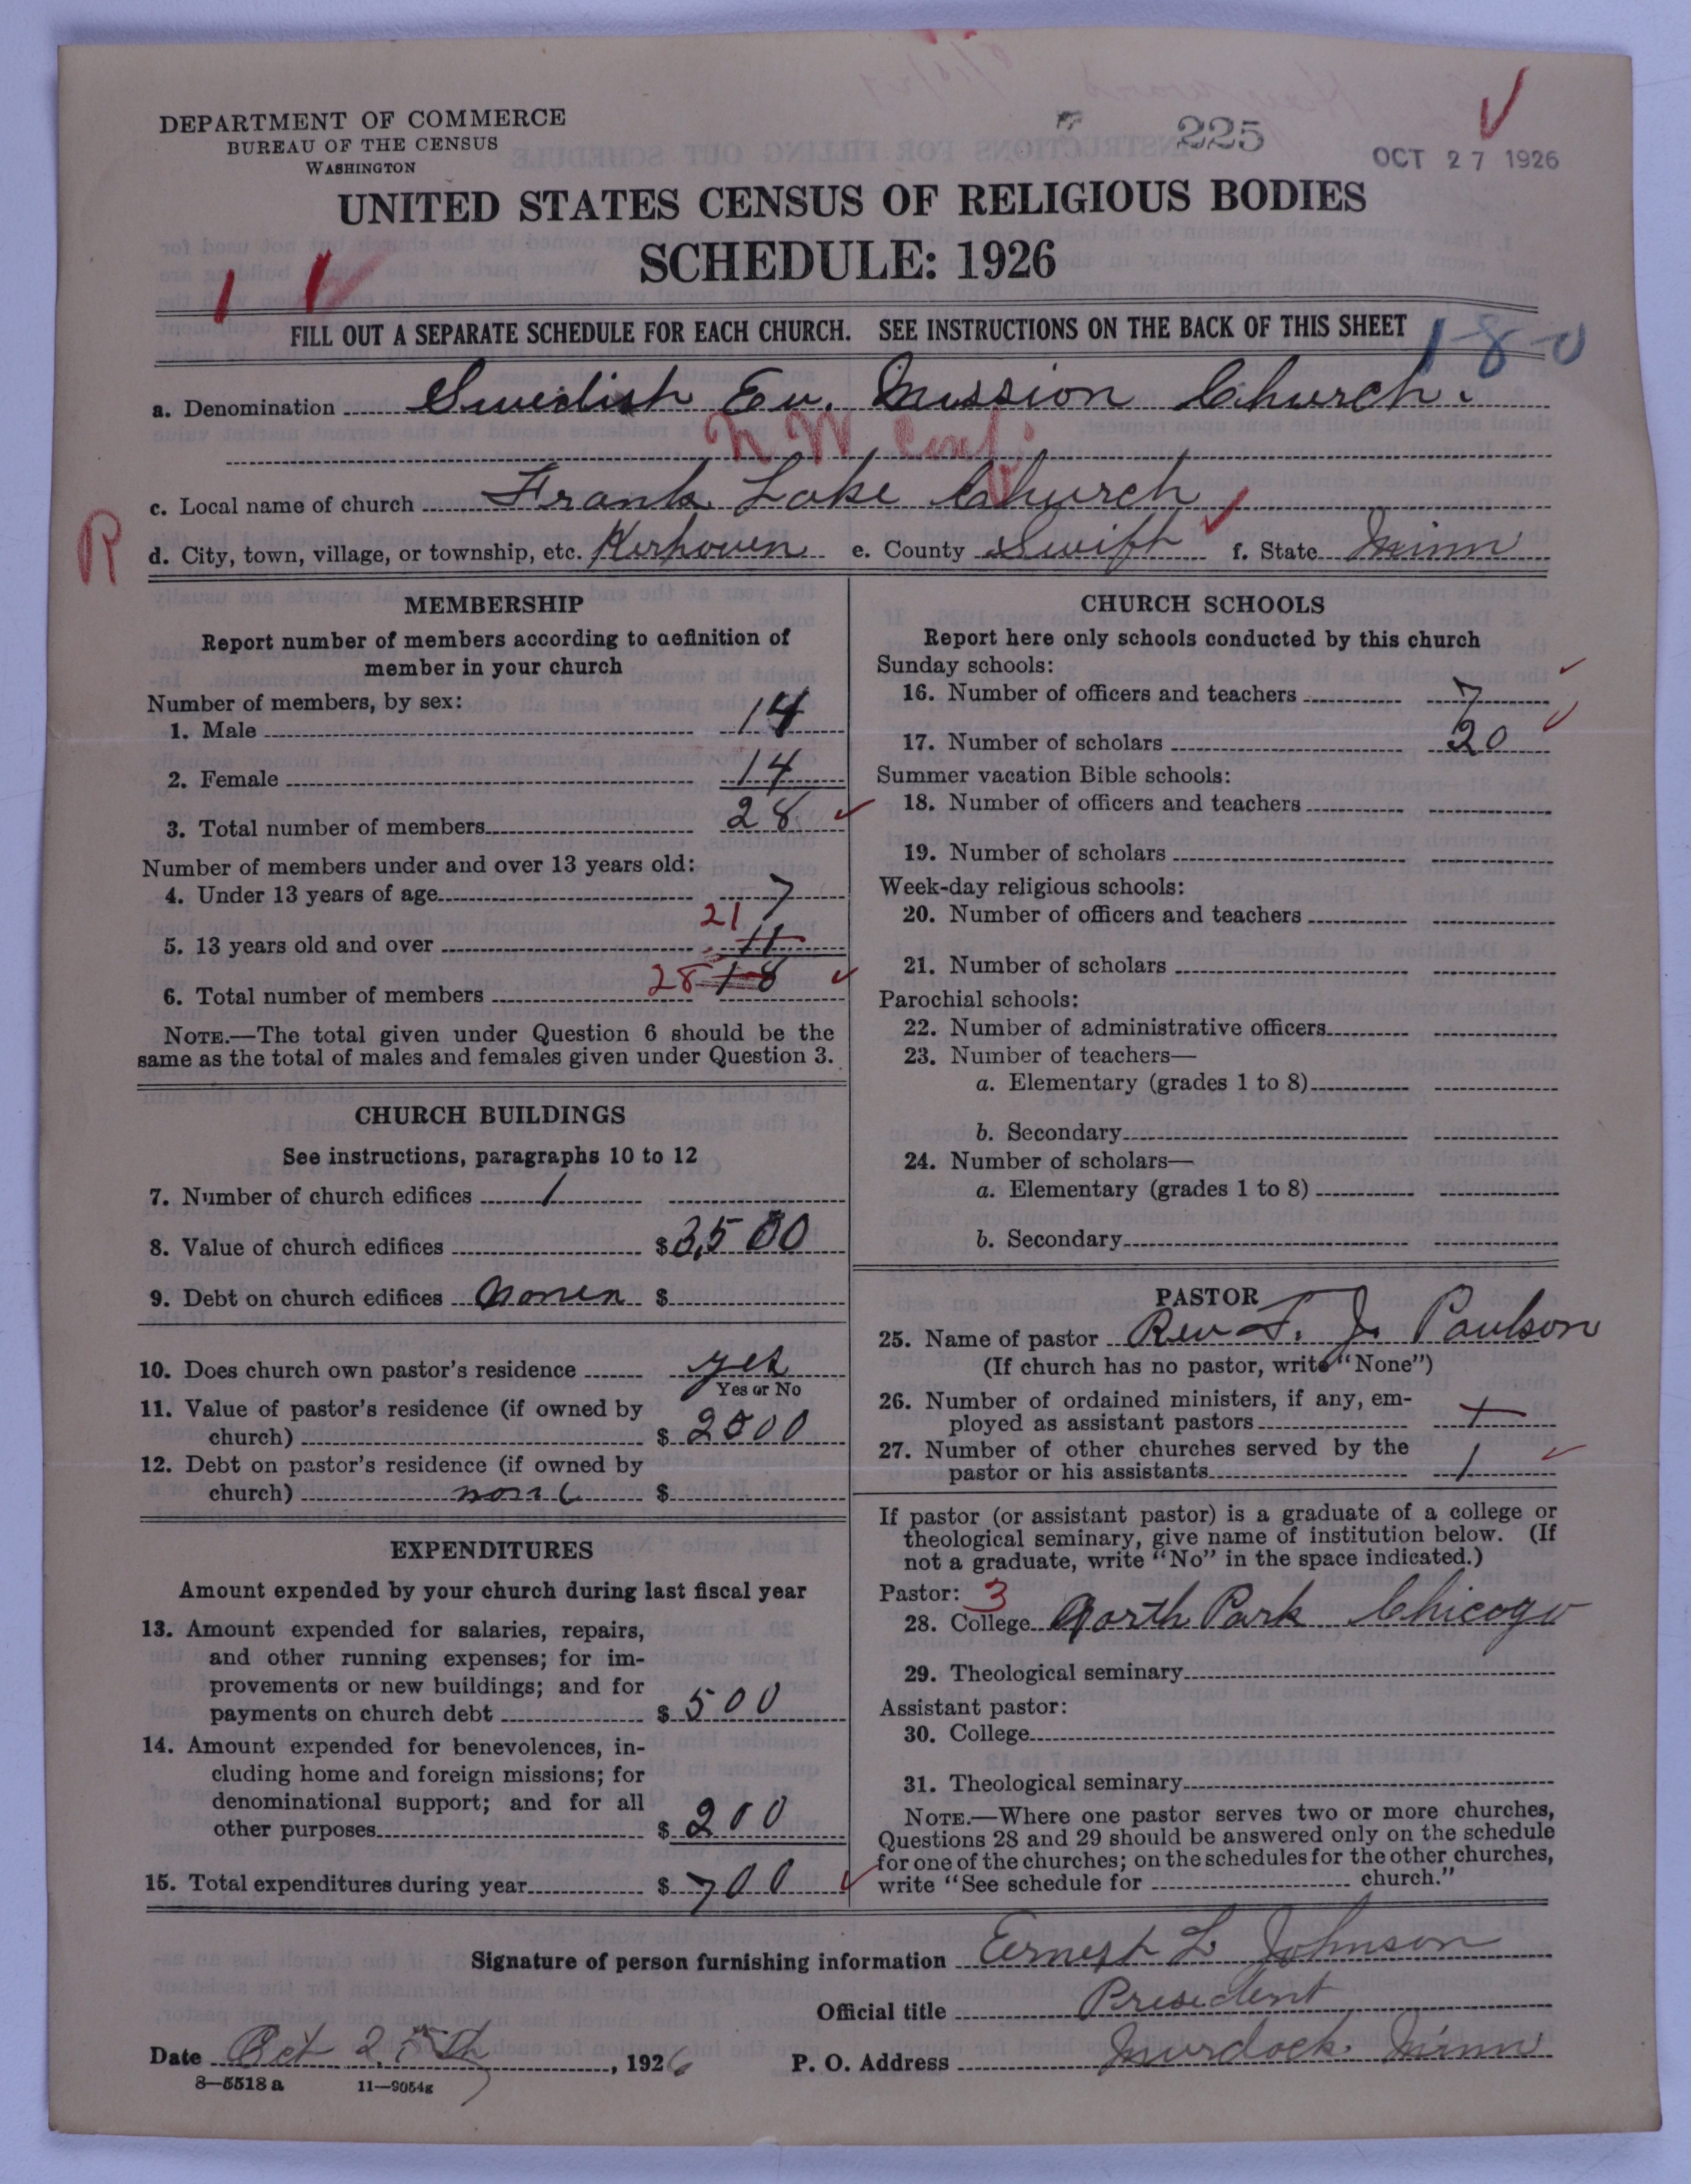 DEPARTMENT OF COMMERCE
BUREAU OF THE CENSUS
WASHINGTON
225
OCT 27 1926
UNITED STATES CENSUS OF RELIGIOUS BODIES
SCHEDULE: 1926
FILL OUT A SEPARATE SCHEDULE FOR EACH CHURCH. SEE INSTRUCTIONS ON THE BACK OF THIS SHEET
1-8-0
a. Denomination Swedish Ev. Mission Church.
N W Conf.
c. Local name of church Frank Lake Church
R
d. City, town, village, or township, etc. Kerhoven e. County Swift f. State Minn
MEMBERSHIP
Report number of members according to definition of
member in your church
Number of members, by sex:
1. Male 14
2. Female 14
3. Total number of members 28
Number of members under and over 13 years old:
4. Under 13 years of age 7
5. 13 years old and over 21 11
6. Total number of members 28 18
NOTE.—The total given under Question 6 should be the
same as the total of males and females given under Question 3.
CHURCH BUILDINGS
See instructions, paragraphs 10 to 12
7. Number of church edifices 1
8. Value of church edifices $ 3,500
9. Debt on church edifices nonen $
10. Does church own pastor's residence yes
Yes or No
11. Value of pastor's residence (if owned by
church) $ 2500
12. Debt on pastor's residence (if owned by
church) none $
EXPENDITURES
Amount expended by your church during last fiscal year
13. Amount expended for salaries, repairs,
and other running expenses; for im-
provements or new buildings; and for
payments on church debt $ 500
14. Amount expended for benevolences, in-
cluding home and foreign missions; for
denominational support; and for all
other purposes $ 200
15. Total expenditures during year $ 700
CHURCH SCHOOLS
Report here only schools conducted by this church
Sunday schools:
16. Number of officers and teachers 7
17. Number of scholars 20
Summer vacation Bible schools:
18. Number of officers and teachers
19. Number of scholars
Week-day religious schools:
20. Number of officers and teachers
21. Number of scholars
Parochial schools:
22. Number of administrative officers
23. Number of teachers—
a. Elementary (grades 1 to 8)
b. Secondary
24. Number of scholars—
a. Elementary (grades 1 to 8)
b. Secondary
PASTOR
25. Name of pastor Rev F. J. Paulson
(If church has no pastor, write "None")
26. Number of ordained ministers, if any, em-
ployed as assistant pastors
27. Number of other churches served by the
pastor or his assistants 1
If pastor (or assistant pastor) is a graduate of a college or
theological seminary, give name of institution below. (If
not a graduate, write "No" in the space indicated.)
Pastor: 3
28. College North Park Chicago
29. Theological seminary
Assistant pastor:
30. College
31. Theological seminary
NOTE.—Where one pastor serves two or more churches,
Questions 28 and 29 should be answered only on the schedule
for one of the churches; on the schedules for the other churches,
write "See schedule for church."
Signature of person furnishing information Ernest L Johnson
Official title President
Date Oct 25th, 1926 P. O. Address Murdock Minn
8—5518 a 11—9054g